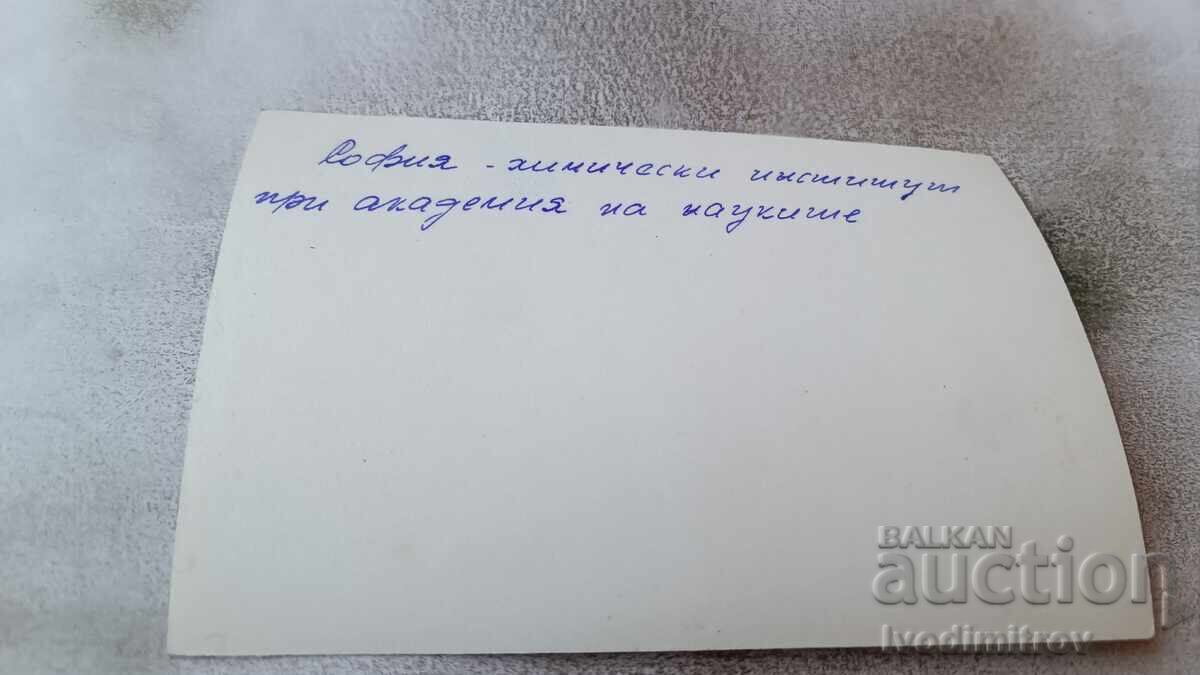 София - химически институт
при академия на науките
BALKAN
auction
Ivodimitrov